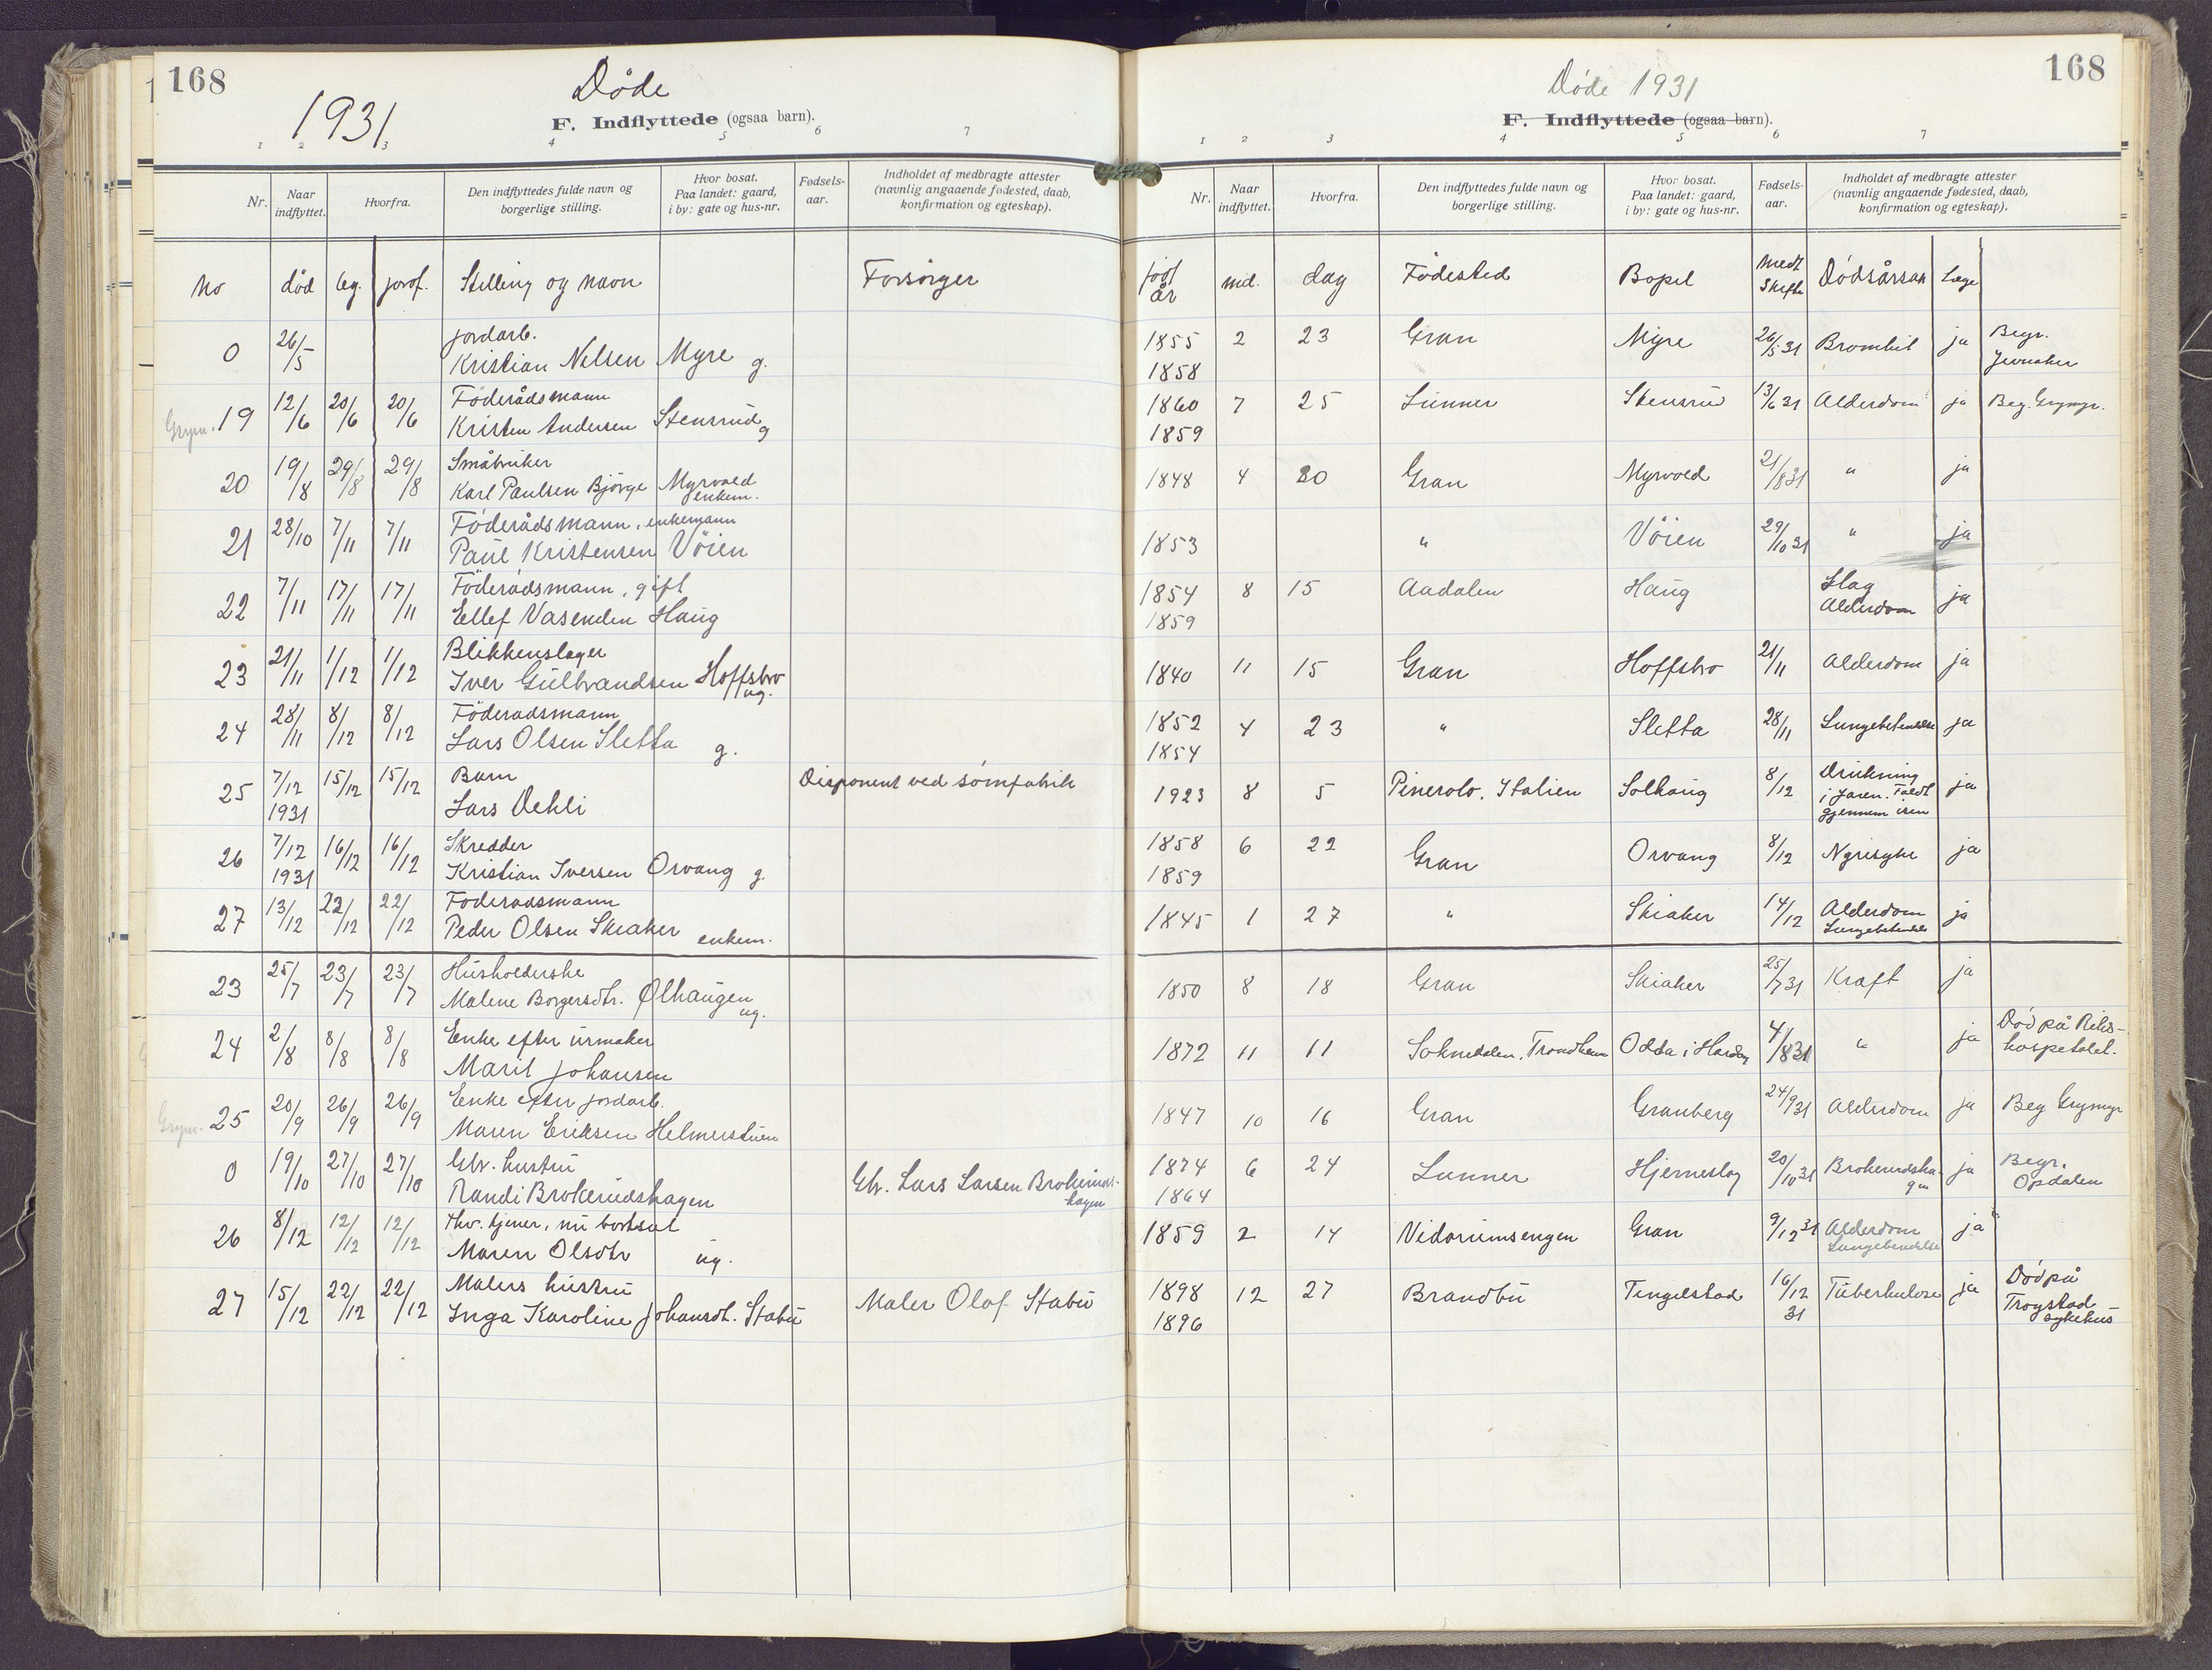 168
Døde
1931
F. Indflyttede (ogsaa barn).
1 2 3 4 5 6 7
Nr. Naar indflyttet. Hvorfra. Den indflyttedes fulde navn og borgerlige stilling. Hvor bosat. Paa landet: gaard, i by: gate og hus-nr. Fødsels-aar. Indholdet af medbragte attester (navnlig angaaende fødested, daab, konfirmation og egteskap).
No død beg. jordf. Stilling og navn Forsørger
0 26/5 jordarb.
Kristian Nilsen Myre g.
Grym. 19 12/6 20/6 20/6 Föderådsmann
Kristen Andersen Stensrud g
20 19/8 29/8 29/8 Småbruker
Karl Paulsen Bjørge Myrvold
enkem.
21 28/10 7/11 7/11 Föderådsmann, enkemann
Paul Kristensen Vöien
22 7/11 17/11 17/11 Föderådsmann, gift
Ellef Vasenden Haug
23 21/11 1/12 1/12 Blikkenslager
Iver Gulbrandsen Hoffsbro
ug.
24 28/11 8/12 8/12 Föderadsmann
Lars Olsen Sletta g.
25 7/12 1931 15/12 15/12 Barn
Lars Oehli
Disponent ved sömfabrik
26 7/12 1931 16/12 16/12 Skredder
Kristian Iversen Orvang g.
27 13/12 22/12 22/12 Foderadsmann
Peder Olsen Skiaker enkem.
23 25/7 23/7 23/7 Husholderske
Malene Borgersdtr. Ølhaugen
ug.
24 2/8 8/8 8/8 Enke efter urmaker
Marit Johansen
Grym. 25 20/9 26/9 26/9 Enke efter jordarb.
Maren Eriksen Helmerstuen
0 19/10 27/10 27/10 Gbr. hustru
Randi Brokerudshagen
Gbr. Lars Larsen Brokeruds-
hagen
26 8/12 12/12 12/12 Thv. tjener, nu bortsat
Maren Olsdtr ug.
27 15/12 22/12 22/12 Malers hustru
Inga Karoline Johansdt. Stabu
Maler Olaf Stabu
168
Døde 1931
F. Indflyttede (ogsaa barn).
1 2 3 4 5 6 7
Nr. Naar indflyttet. Hvorfra. Den indflyttedes fulde navn og borgerlige stilling. Hvor bosat. Paa landet: gaard, i by: gate og hus-nr. Fødsels-aar. Indholdet af medbragte attester (navnlig angaaende fødested, daab, konfirmation og egteskap).
år md. dag Födested Bopel medt Skifte Dödsårsak Læge
1855 2 23 Gran Myre 26/5 31 ja Begr. Jevnaker
1858
1860 7 25 Lunner Stensrud 13/6 31 Alderdom ja Beg. Grymyr.
1859
1848 4 30 Gran Myrvold 21/8 31 " ja
1853 " Vöien 29/10 31 " ja
1854 8 15 Aadalen Haug Slag Alderdom ja
1859
1840 11 15 Gran Hoffsbro 21/11 Alderdom ja
1852 4 23 " Sletta 28/11 Lungebetendelse ja
1854
1923 8 5 Pinerolo. Italien Solhaug 8/12 Drukning i Jaren. Faldt gjennem isen ja
1858 6 22 Gran Orvang 8/12 Nyrisyke ja
1859
1845 1 27 " Skiaker 14/12 Alderdom Lungebetendelse ja
1850 8 18 Gran Skiaker 25/7 31 Kraft ja
1872 11 11 Soknedalen, Trondheim Odda i Hardang 4/8 31 " ja Död på Riks-
hospetalet.
1847 10 16 Gran Granberg 24/9 31 Alderdom ja Beg Grymyr
1874 6 24 Lunner Hjerneslag 20/10 31 Brokerudsha-
gen ja Begr. Opdalen
1864
1859 2 14 Vidarumsengen Gran 9/12 31 Alderdom
Lungebendelse ja
1898 12 27 Brandbu Tingelstad 16/12 31 Tuberkulose ja Död på
Trogstad
sykehus
1896